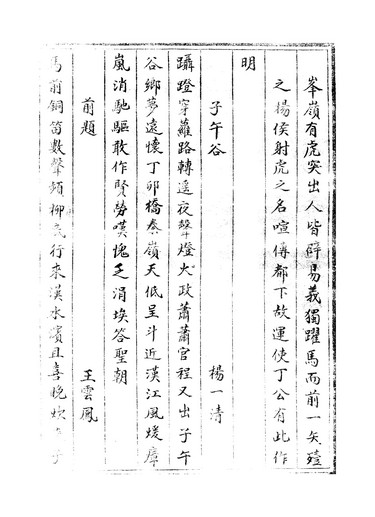 峯嶺有虎突出人皆辟易義獨躍馬而前一矢殪
之楊侯射虎之名喧傳都下故運使丁公有此作
明
子午谷 楊一清
躡蹬穿蘿路轉遥夜聲燈火政蕭蕭官程又出子午
谷鄉夢遠懷丁卯橋秦嶺天低星斗近漢江風煖瘴
嵐消馳驅敢作賢勞嘆愧乏涓埃答聖朝
前題 王雲鳳
馬前銅笛數聲頻柳 行來漢水濱且喜晚炊 子